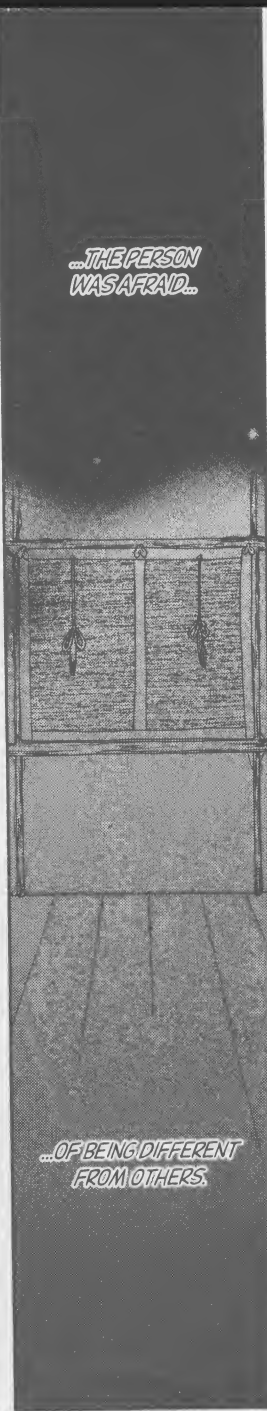 ...THE PERSON
WAS AFRAID...
...OF BEING DIFFERENT
FROM OTHERS.